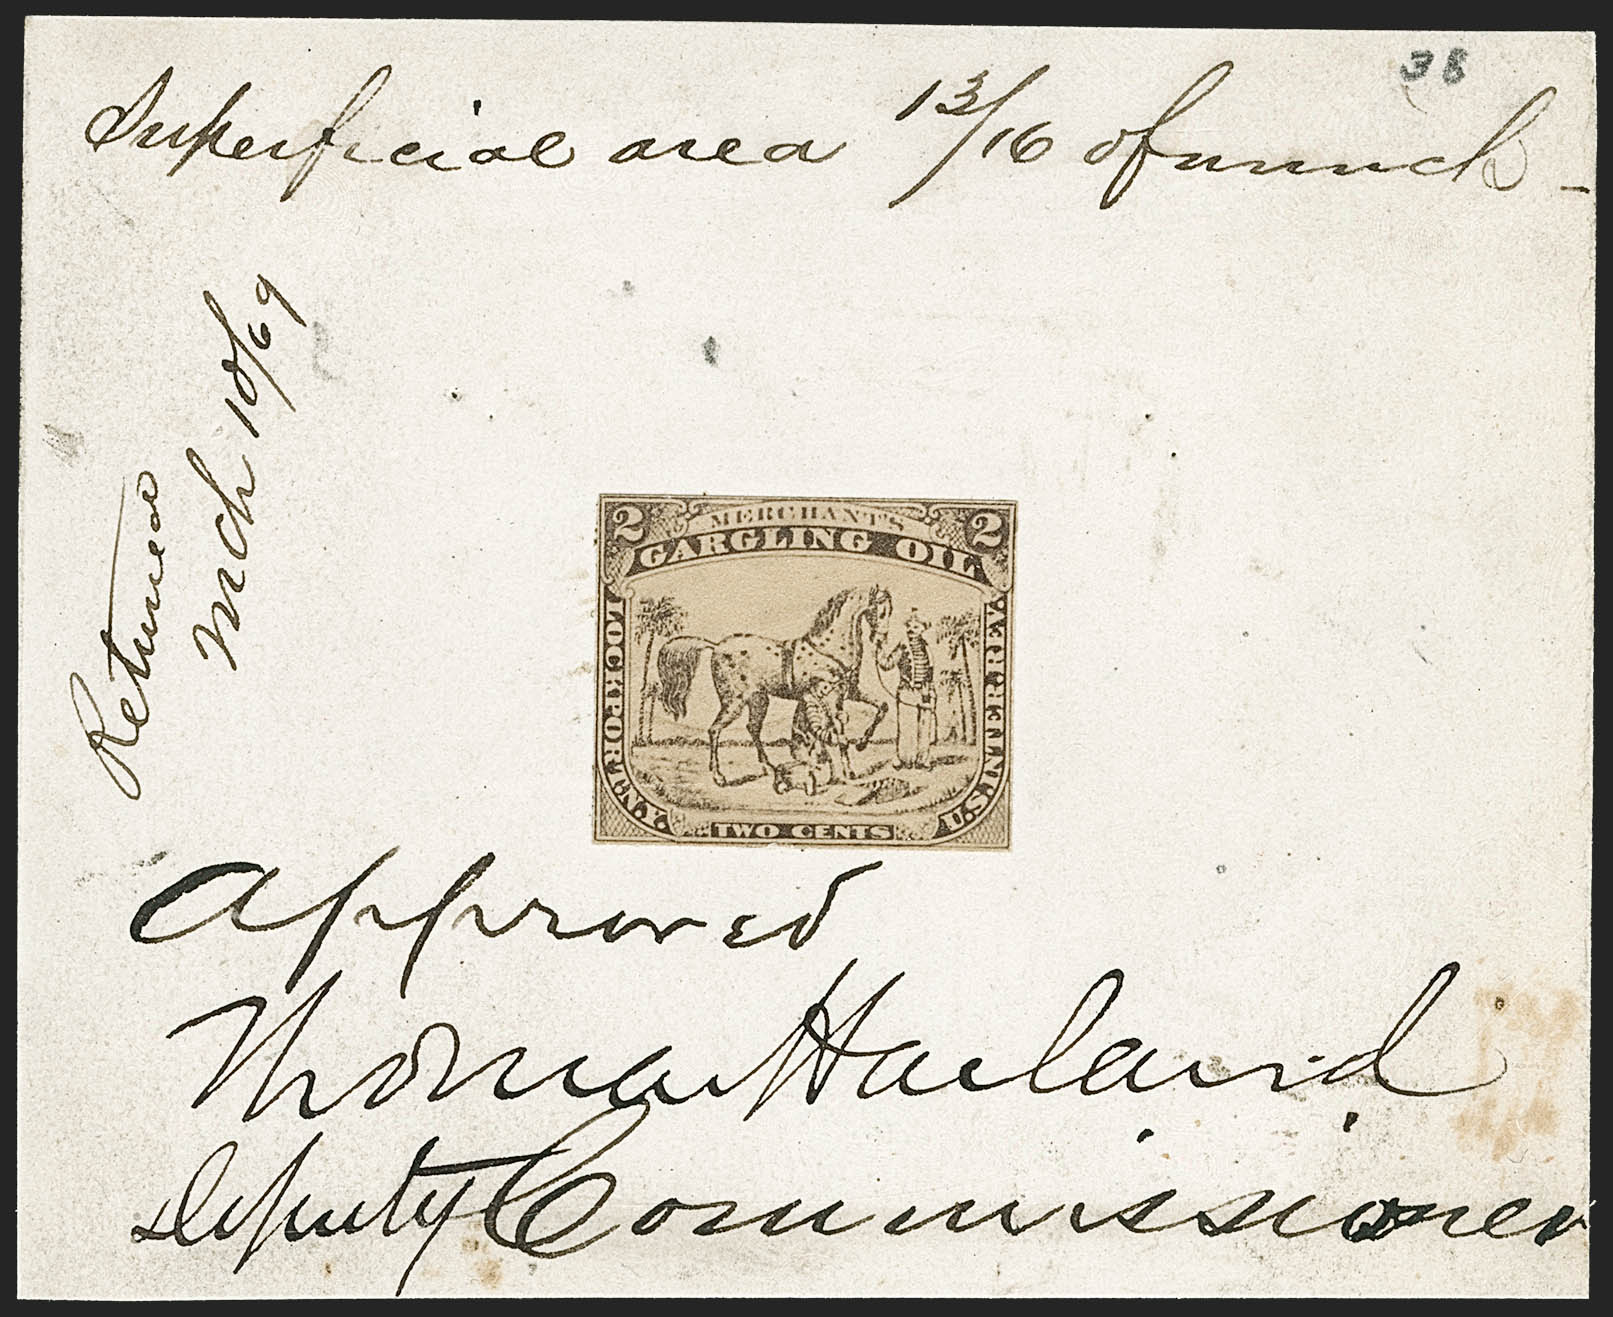 38
Superficial area 13/16 of an inch -
Returned
Mch 10/69
2 MERCHANT'S 2
GARGLING OIL
LOCKPORT, N.Y.
U.S. INT. REV.
TWO CENTS
Approved
Thomas Harland
Deputy Commissioner